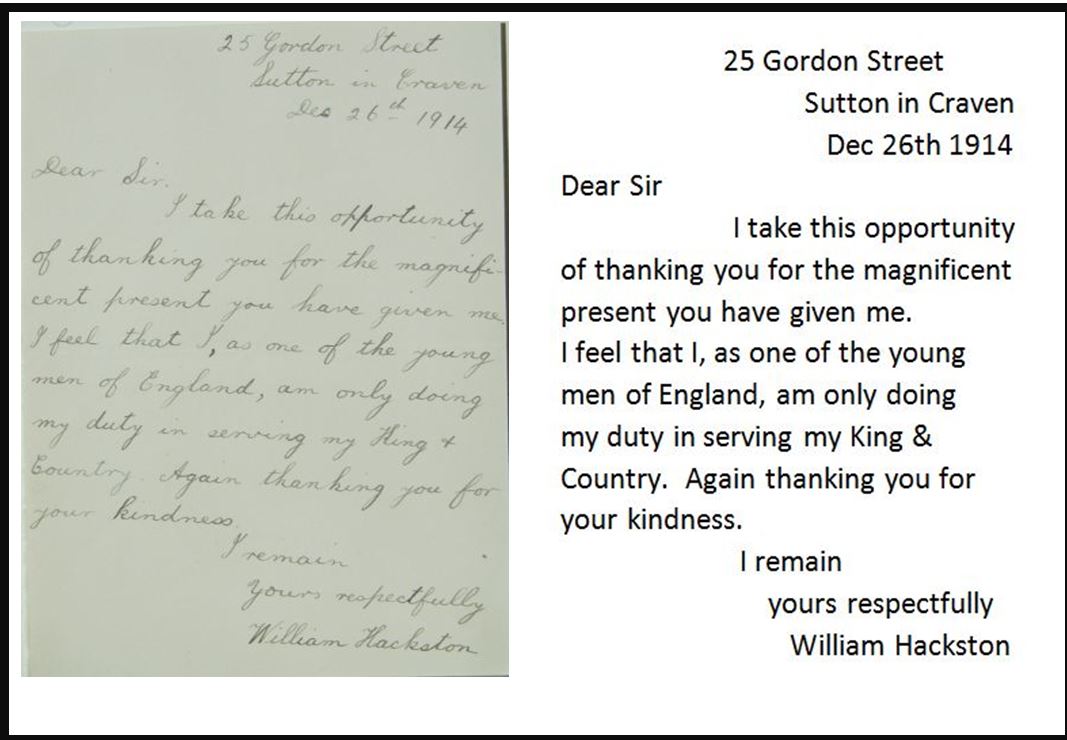 25 Gordon Street
Sutton in Craven
Dec 26th 1914
Dear Sir.
I take this opportunity
of thanking you for the magnifi-
cent present you have given me.
I feel that I, as one of the young
men of England, am only doing
my duty in serving my King +
Country. Again thanking you for
your kindness.
I remain
Yours respectfully
William Hackston
25 Gordon Street
Sutton in Craven
Dec 26th 1914
Dear Sir
I take this opportunity
of thanking you for the magnificent
present you have given me.
I feel that I, as one of the young
men of England, am only doing
my duty in serving my King &
Country.  Again thanking you for
your kindness.
I remain
yours respectfully
William Hackston